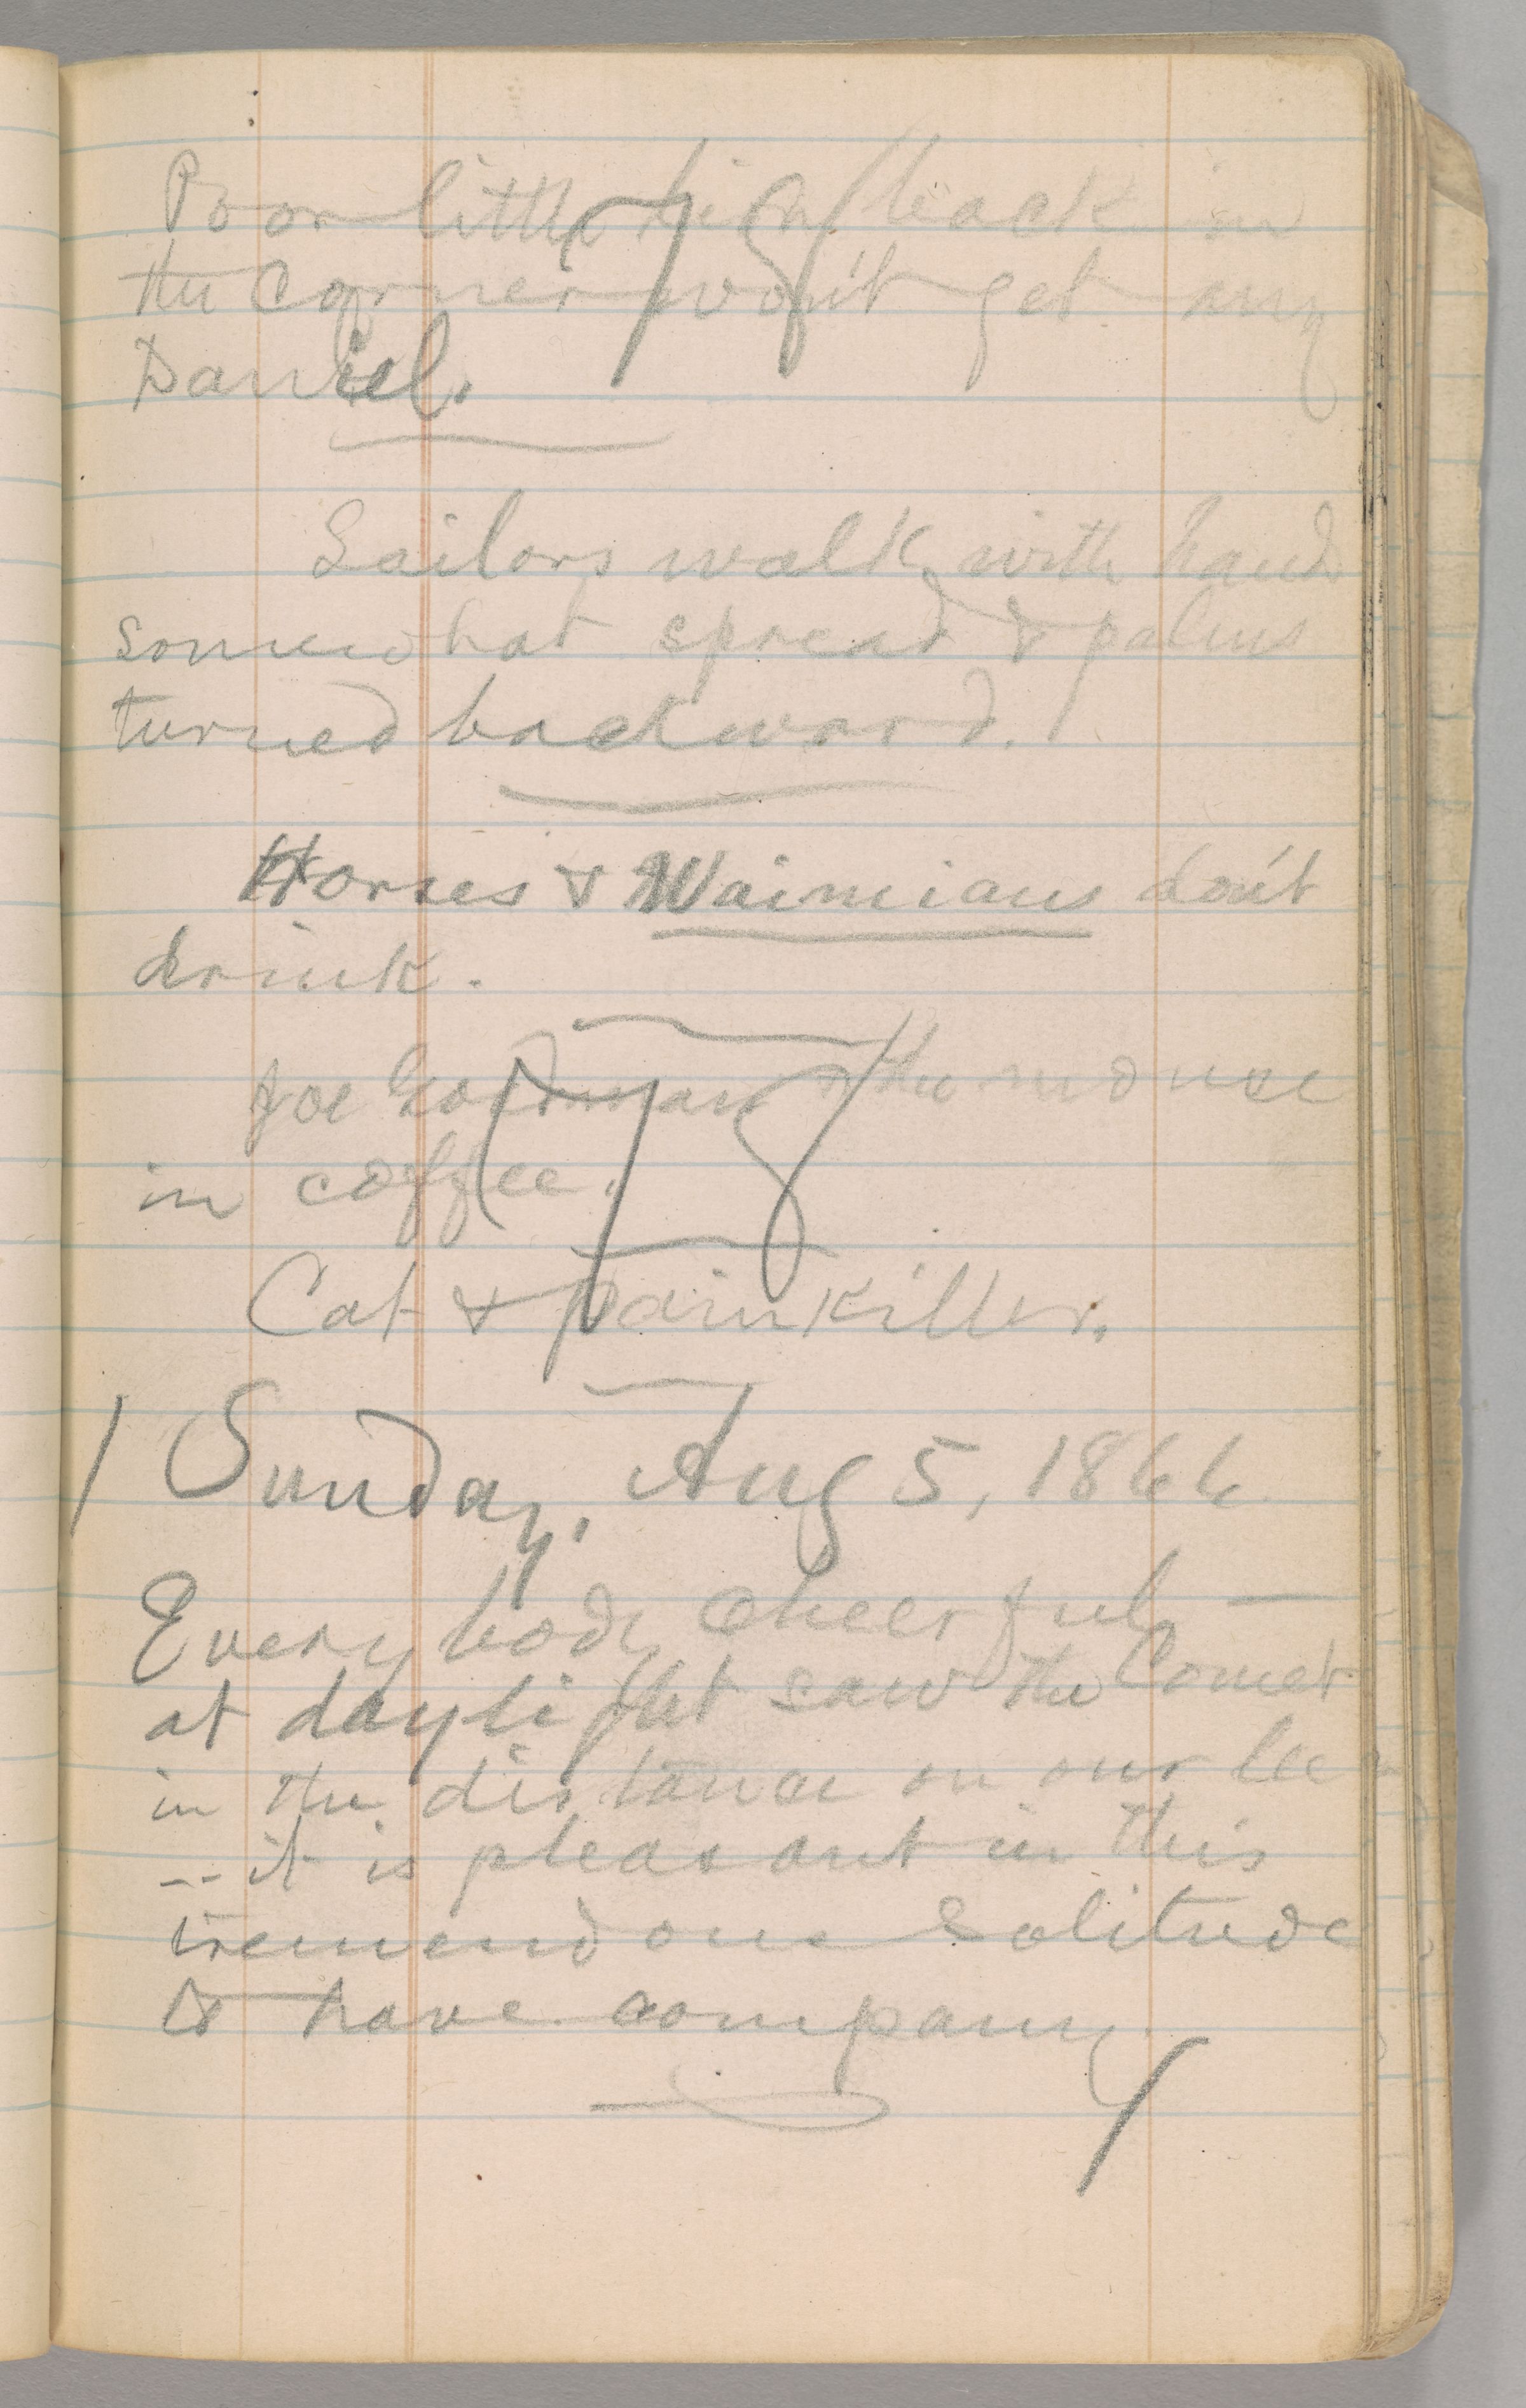 Poor little back in
the Corner won't get any
Daniel.
Sailors walk with hands
somewhat spread & palms
turned backward.
Horses & Waimeians don't
drink.
Joe Goodman & the mouse
in coffee.
Cat & Painkiller.
Sunday, Aug 5, 1866
Everybody cheerful —
at daylight saw the Comet
in the distance on our lee
-- it is pleasant in this
tremendous solitude
to have company